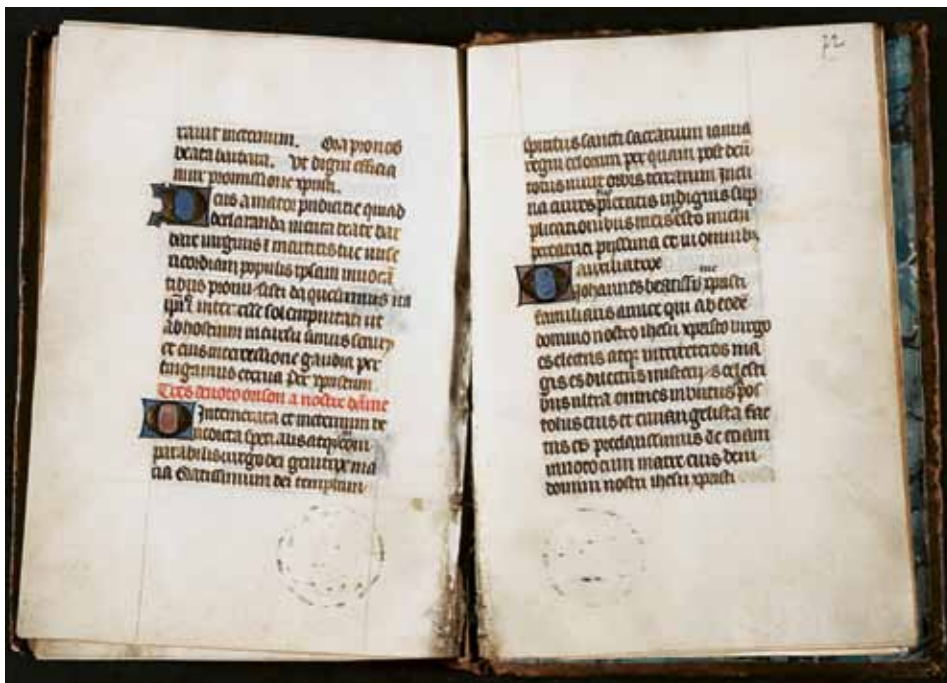 rauit in eternum. Ora pro nob
beata barbara. Ut digni efficia
mur promissione xpisti.
Deus amator pudicitie qui ad
declaranda merita beate bar
bare uirginis et martiris tue mise
ricordiam populis ipsam inuocā
tibus
ab hostium incursu simus
et eius intercessione gaudia per
tingamus eterna Per xpistum
Tres deuote orison a nostre dame
O Intemerata et in eternum be
nedicta
parabilis uirgo dei genitrix ma
ria Gratissimum dei templum
72
spiritus sancti sacrarium ianua
regni celorum per quam post deū
totus uiuit orbis terrarum Incli
na aures pietatis indignis sup
plicationibus meis esto michi
peccatori pijssima et in omnibꝫ
auxiliatrix
O Johannes xpisti
familiaris amice qui ab eodē
domino nostro ihesu xpisto uirgo
es electus atqꝫ inter ceteros ma
gis es dilectus misterijs celesti
bus ultra omnes inbutus pos
tolus eius et euuangelista fac
tus es preclarissimus te etiam
inuoco cum matre eius
domini nostri ihesu xpisti